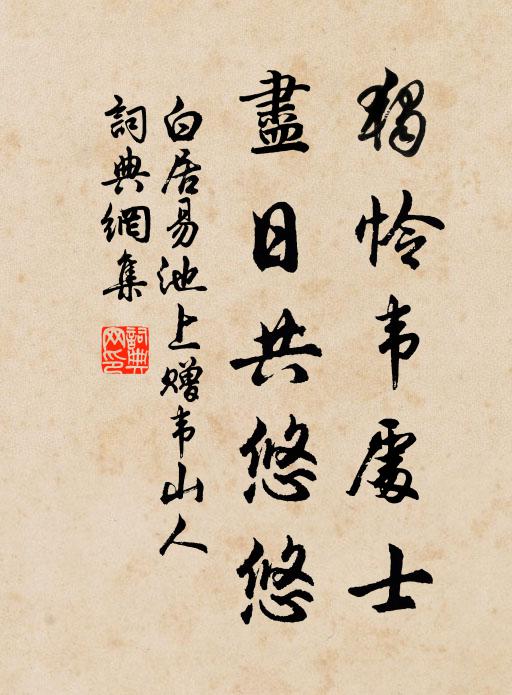 獨怜韦處士
盡日共悠悠
白居易池上赠韦山人
詞典網集
詞典网印